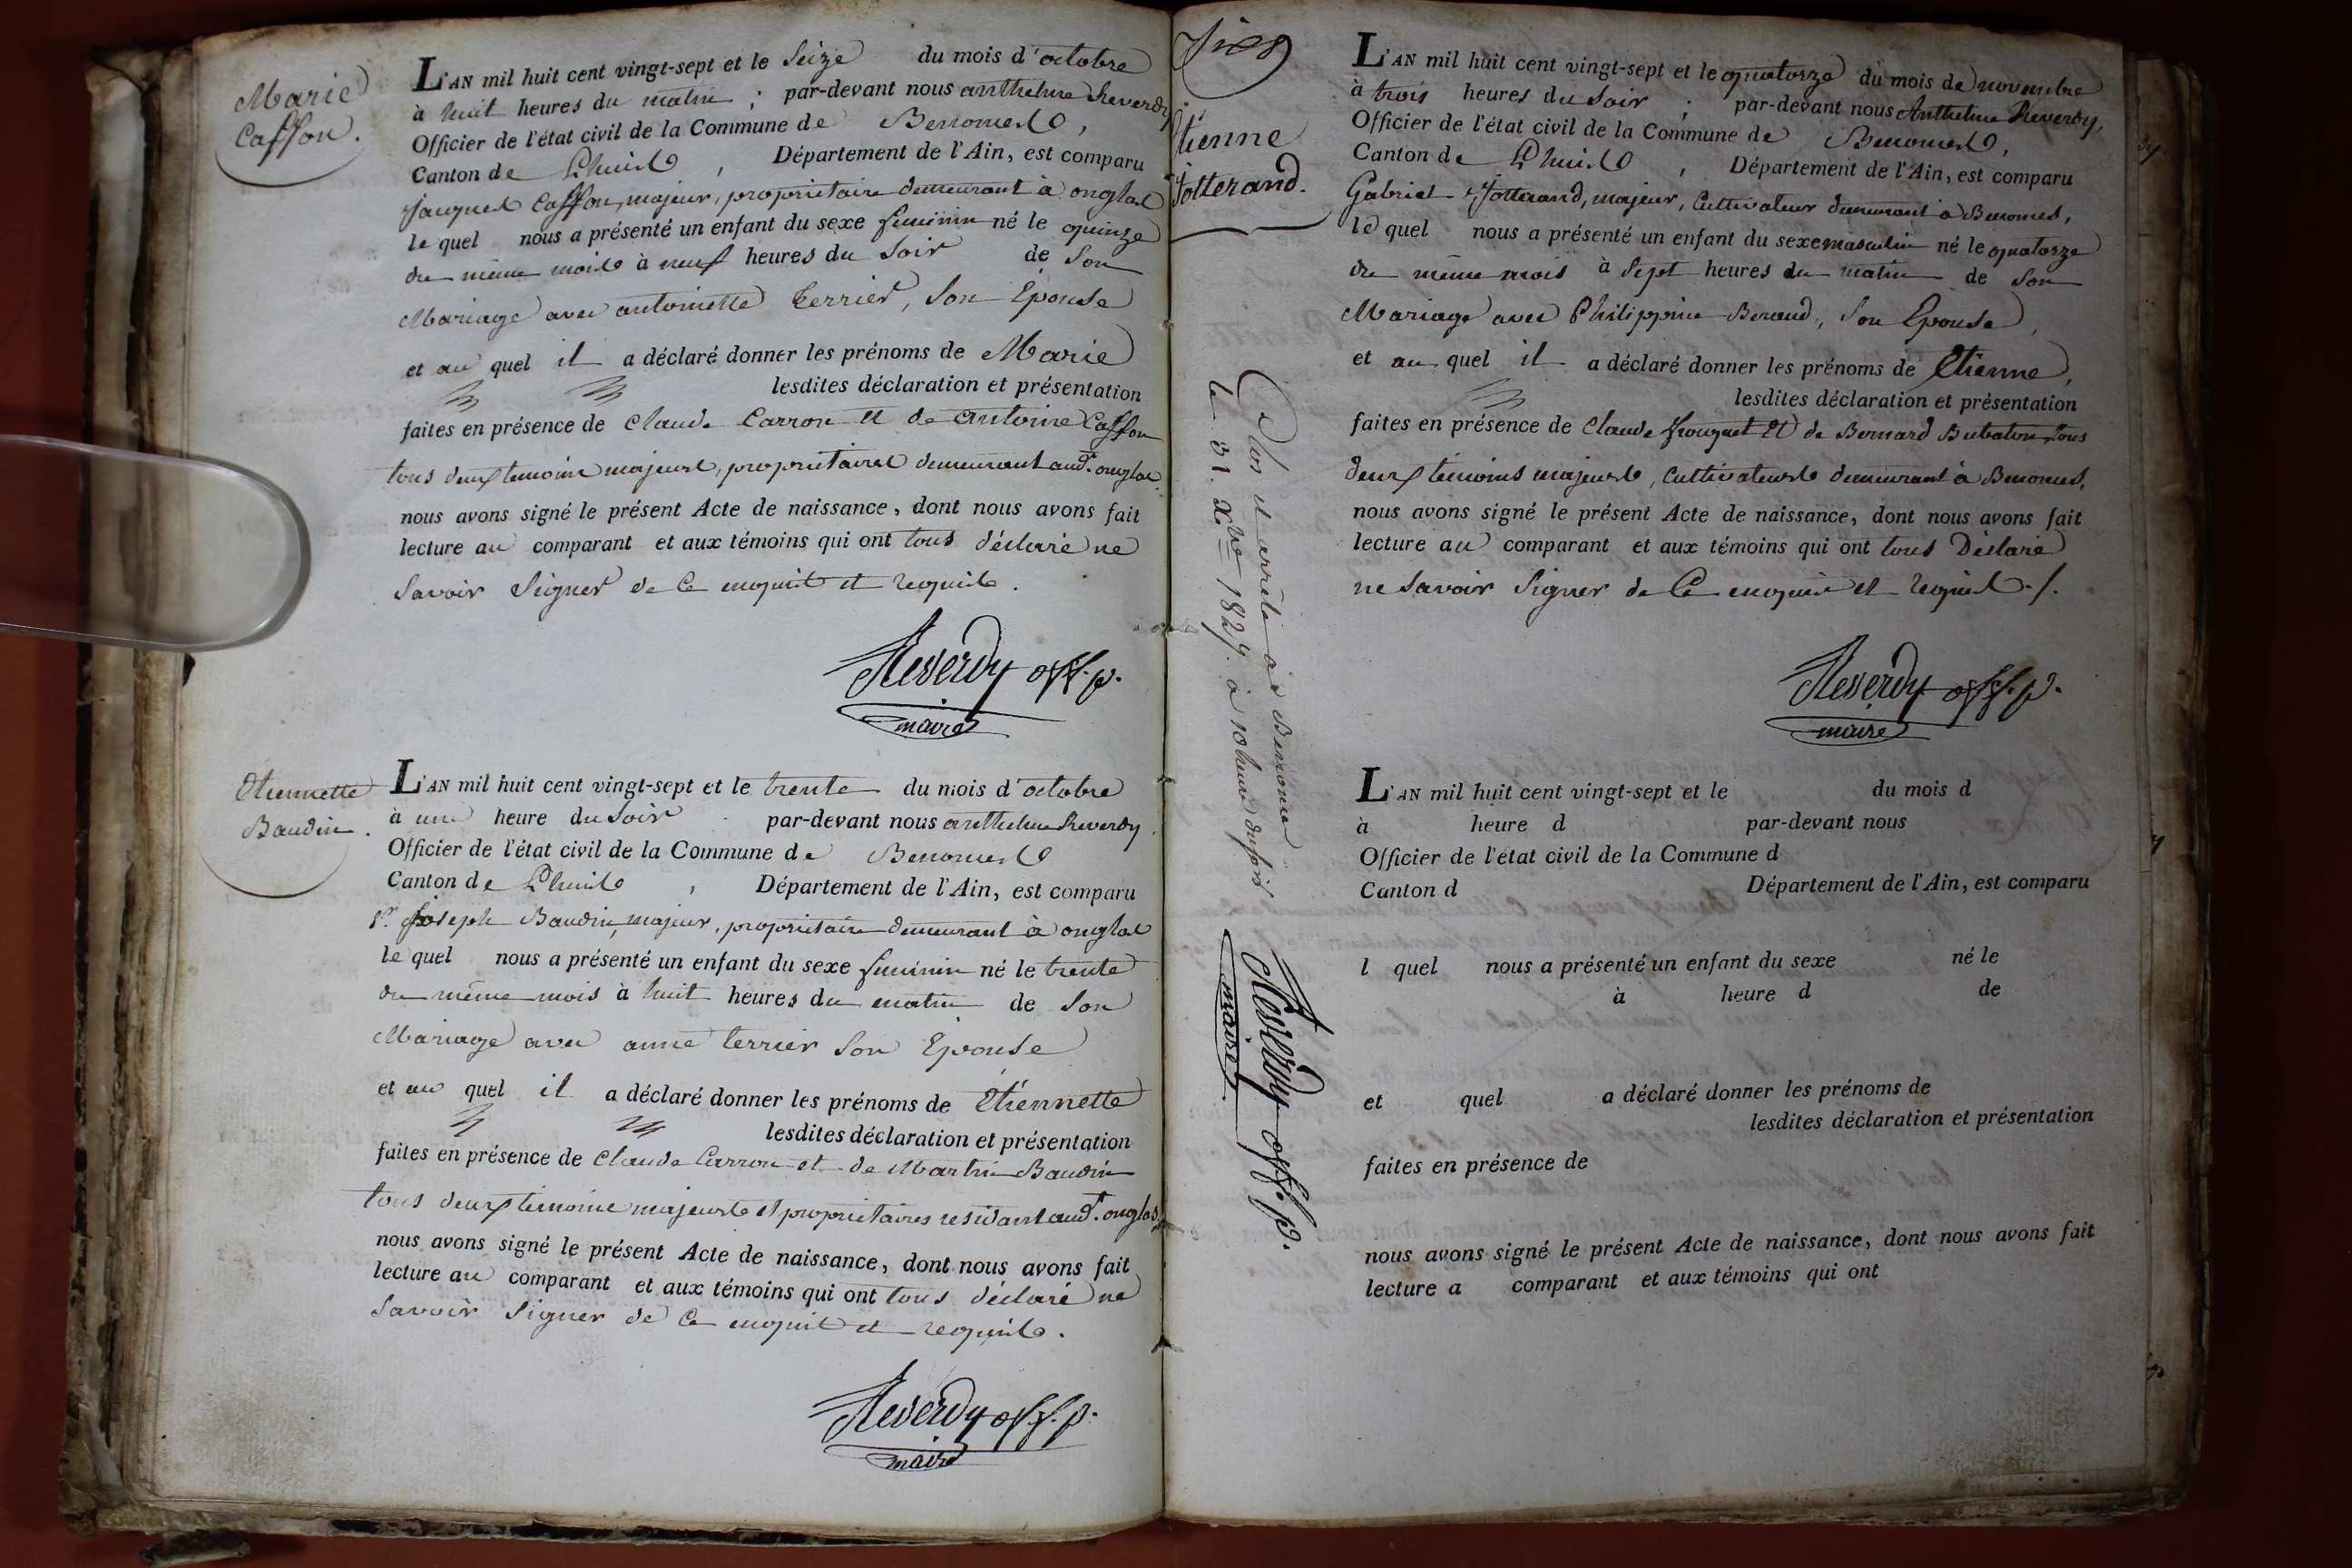 Marie
Caffon.
L'AN mil huit cent vingt-sept et le Seize du mois d'octobre
à huit heures du matin ; par-devant nous anthelme Reverdy
Officier de l'état civil de la Commune de Benonces,
Canton de Lhuis, Département de l'Ain, est comparu
Jacques Caffon, majeur, propriétaire demeurant à onglas
le quel nous a présenté un enfant du sexe feminin né le quinze
du même mois à neuf heures du Soir de Son
Mariage avec antoinette terrier, Son Epouse
et au quel il a déclaré donner les prénoms de Marie
lesdites déclaration et présentation
faites en présence de Claude Carron et de Antoine Caffon
tous deux temoins majeurs, propriétaires demeurant audt. onglas
nous avons signé le présent Acte de naissance, dont nous avons fait
lecture au comparant et aux témoins qui ont tous déclaré ne
Savoir Signer de Ce enquis et requis.
Reverdy off. p.
maire
Etiennette
Baudin.
L'AN mil huit cent vingt-sept et le trente du mois d'octobre
à une heure du Soir par-devant nous anthelme Reverdy
Officier de l'état civil de la Commune de Benonces
Canton de Lhuis, Département de l'Ain, est comparu
Sr. Joseph Baudin, majeur, propriétaire demeurant à onglas
le quel nous a présenté un enfant du sexe feminin né le trente
du même mois à huit heures du matin de Son
Mariage avec anne terrier Son Epouse
et au quel il a déclaré donner les prénoms de Etiennette
lesdites déclaration et présentation
faites en présence de Claude Carron et de Martin Baudin
tous deux temoins majeurs et propriétaires residant audt. onglas
nous avons signé le présent Acte de naissance, dont nous avons fait
lecture au comparant et aux témoins qui ont tous déclaré ne
Savoir Signer de Ce enquis et requis.
Reverdy off. p.
maire
Etienne
Jotterand.
Clos et arrêté à Benonces
le 31. Xbre 1827. à 10 heures du soir
Reverdy off. p.
maire
L'AN mil huit cent vingt-sept et le quatorze du mois de novembre
à trois heures du Soir ; par-devant nous Anthelme Reverdy,
Officier de l'état civil de la Commune de Benonces,
Canton de Lhuis, Département de l'Ain, est comparu
Gabriel Jotterand, majeur, Cultivateur demeurant à Benonces,
le quel nous a présenté un enfant du sexe masculin né le quatorze
du même mois à Sept heures du matin de Son
Mariage avec Philippine Beraud, Son Epouse,
et au quel il a déclaré donner les prénoms de Etienne,
lesdites déclaration et présentation
faites en présence de Claude Frouquet et de Bernard Bubaton tous
deux témoins majeurs, Cultivateurs demeurant à Benonces,
nous avons signé le présent Acte de naissance, dont nous avons fait
lecture au comparant et aux témoins qui ont tous Déclaré
ne Savoir Signer de Ce enquis et requis ./.
Reverdy off. p.
maire
L'AN mil huit cent vingt-sept et le du mois d
à heure d par-devant nous
Officier de l'état civil de la Commune d
Canton d Département de l'Ain, est comparu
l quel nous a présenté un enfant du sexe né le
à heure d de
et quel a déclaré donner les prénoms de
lesdites déclaration et présentation
faites en présence de
nous avons signé le présent Acte de naissance, dont nous avons fait
lecture a comparant et aux témoins qui ont